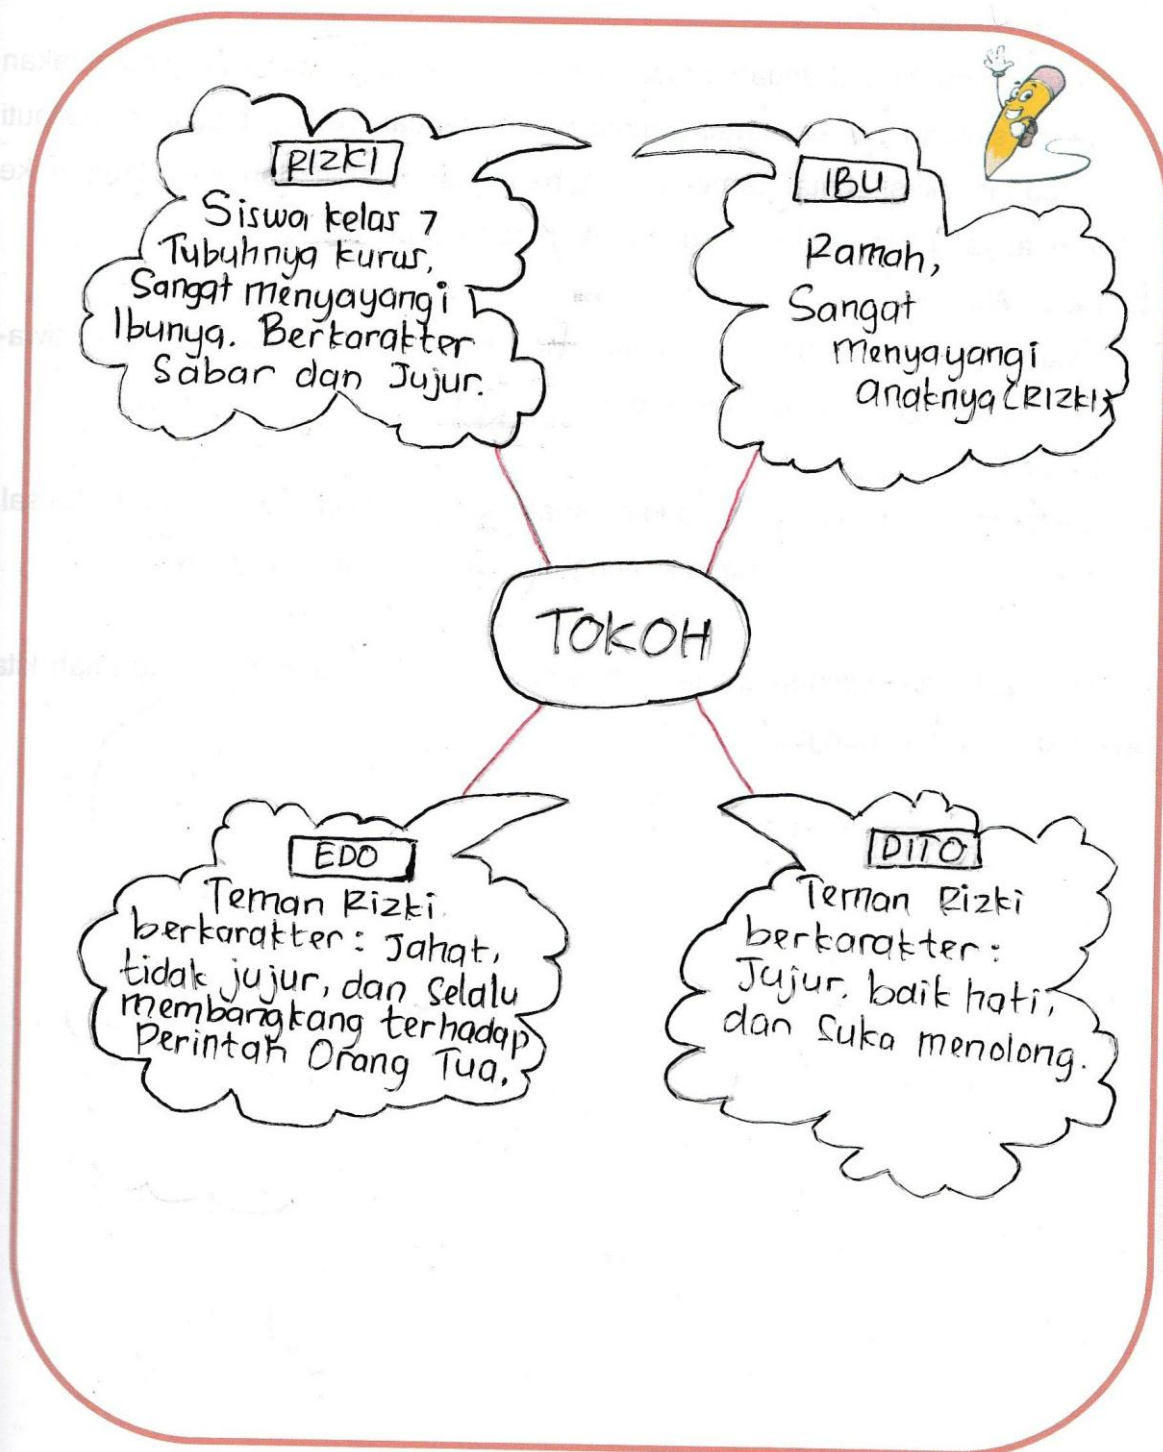 RIZKI
Siswa kelas 7
Tubuhnya kurus,
Sangat menyayangi
Ibunya. Berkarakter
Sabar dan Jujur.
IBU
Ramah,
Sangat
menyayangi
anaknya (RIZKI)
TOKOH
EDO
Teman Rizki
berkarakter: Jahat,
tidak jujur, dan Selalu
membangkang terhadap
Perintah Orang Tua.
DITO
Teman Rizki
berkarakter:
Jujur, baik hati,
dan Suka menolong.